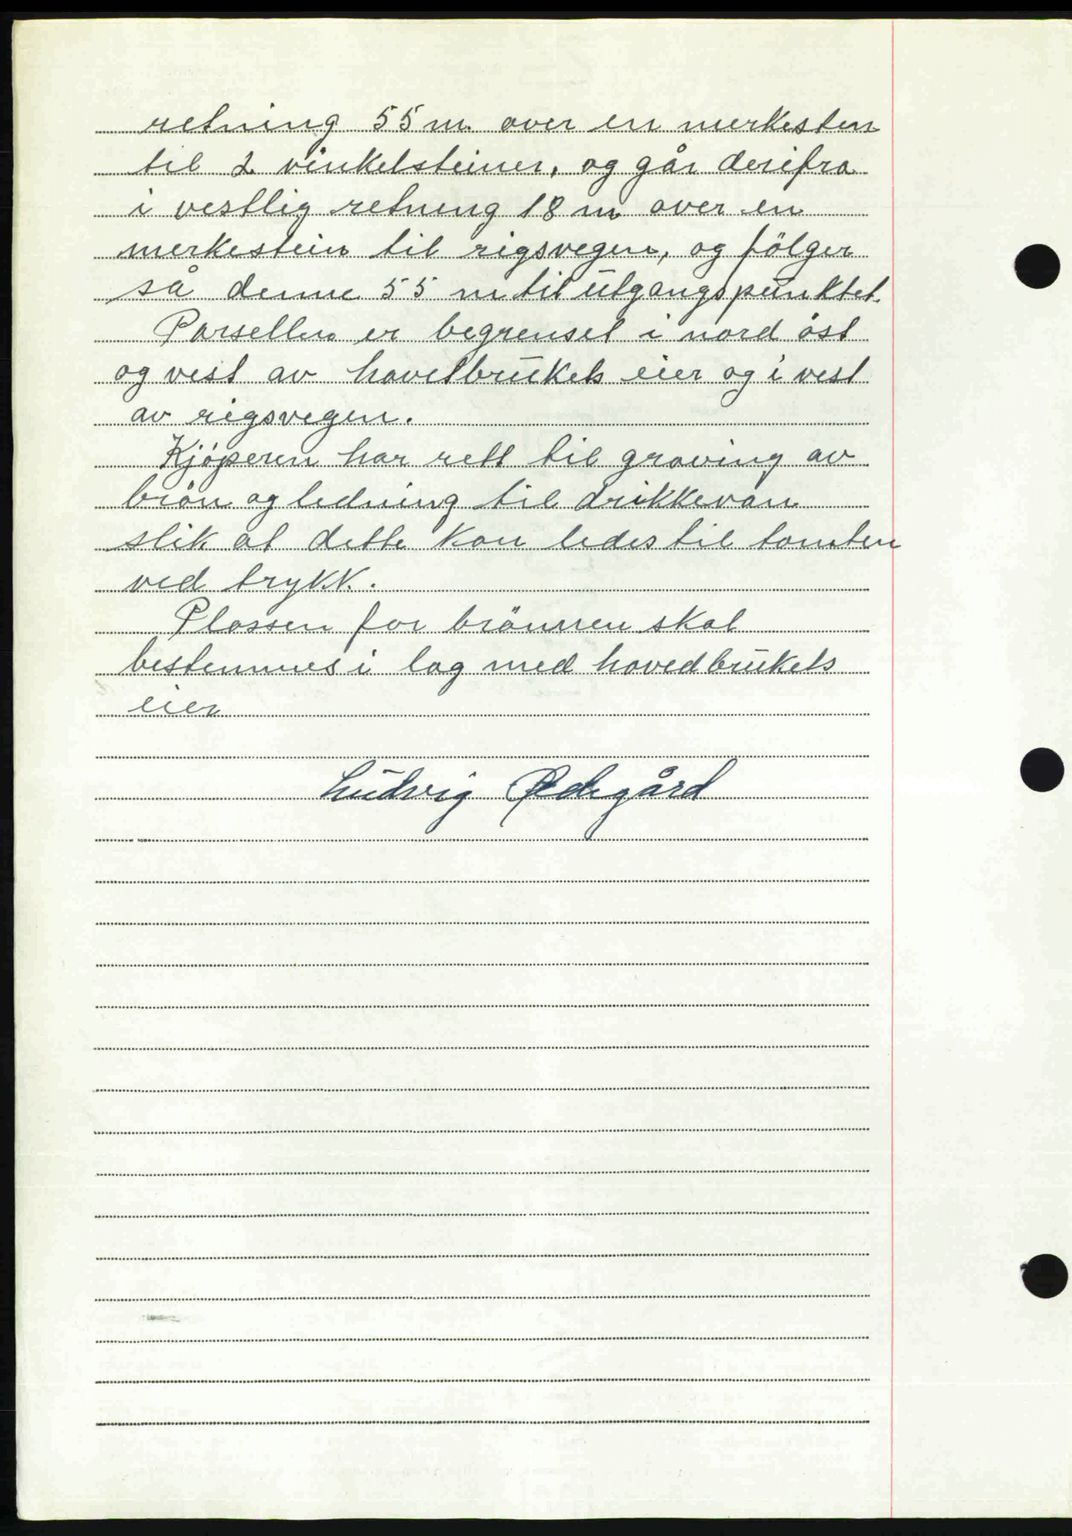 retning 55 m. over en merkesten
til 2 vinkelsteiner, og går derifra
i vestlig retning 18 m over en
merkestein til rigsvegen, og fölger
så denne 55 m til utgangspunktet.
Parsellen er begrenset i nord öst
og vest av hovedbrukets eier og i vest
av rigsvegen.
Kjöperen har rett til graving av
brön og ledning til drikkevan
slik at dette kan ledes til tomten
ved trykk.
Plassen for brönnen skal
bestemmes i lag med hovedbrukets
eier
Ludvig Ødegård